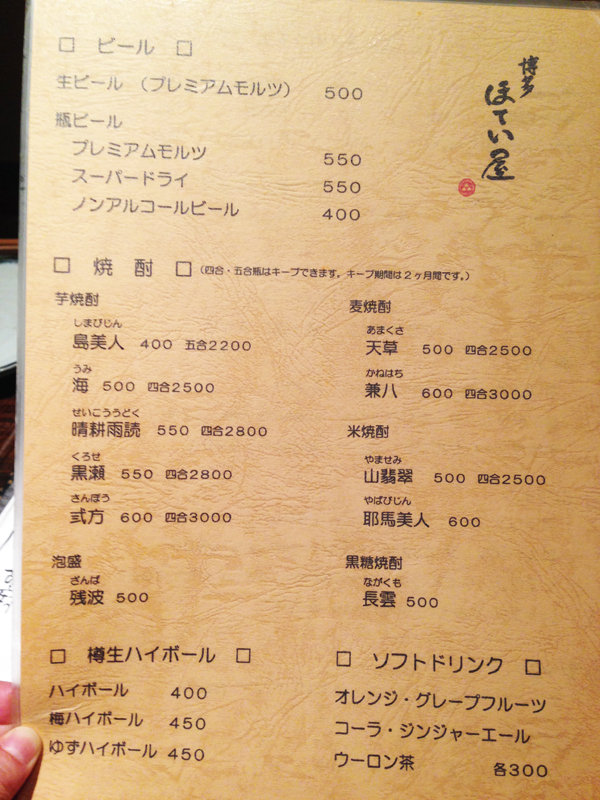 博多
ほてい屋
□ ビール □
生ビール （プレミアムモルツ） 500
瓶ビール
プレミアムモルツ 550
スーパードライ 550
ノンアルコールビール 400
□ 焼酎 □ （四合・五合瓶はキープできます。キープ期間は2ヶ月間です。）
芋焼酎
しまびじん
島美人 400 五合2200
うみ
海 500 四合2500
せいこううどく
晴耕雨読 550 四合2800
くろせ
黒瀬 550 四合2800
さんぽう
弎方 600 四合3000
泡盛
ざんぱ
残波 500
麦焼酎
あまくさ
天草 500 四合2500
かねはち
兼八 600 四合3000
米焼酎
やませみ
山翡翠 500 四合2500
やばびじん
耶馬美人 600
黒糖焼酎
ながくも
長雲 500
□ 樽生ハイボール □
ハイボール 400
梅ハイボール 450
ゆずハイボール 450
□ ソフトドリンク □
オレンジ・グレープフルーツ
コーラ・ジンジャーエール
ウーロン茶 各300